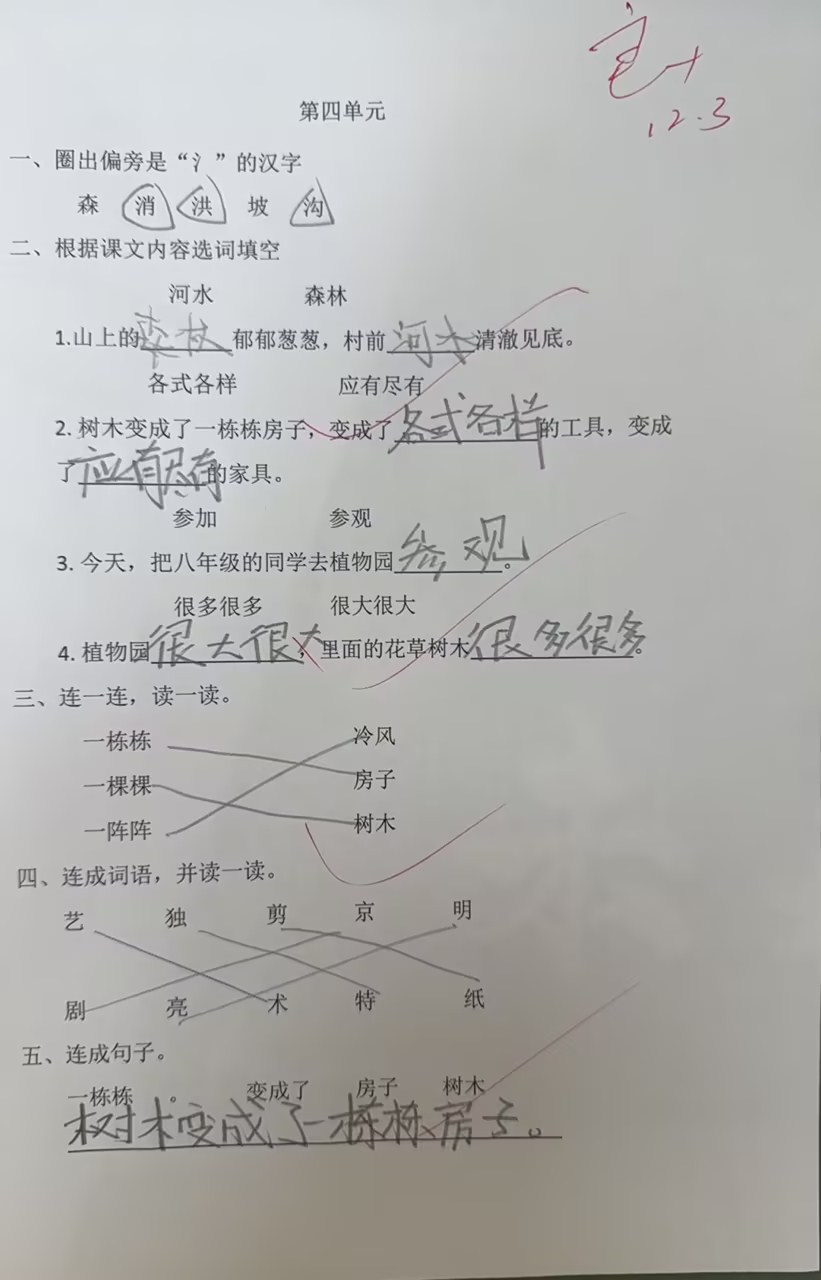 12.3
第四单元
一、圈出偏旁是“氵”的汉字
森 消 洪 坡 沟
二、根据课文内容选词填空
河水 森林
1.山上的森林郁郁葱葱，村前河水清澈见底。
各式各样 应有尽有
2. 树木变成了一栋栋房子，变成了各式各样的工具，变成
了应有尽有的家具。
参加 参观
3. 今天，把八年级的同学去植物园参观。
很多很多 很大很大
4. 植物园很大很大，里面的花草树木很多很多。
三、连一连，读一读。
一栋栋 冷风
一棵棵 房子
一阵阵 树木
四、连成词语，并读一读。
艺 独 剪 京 明
剧 亮 术 特 纸
五、连成句子。
一栋栋 。 变成了 房子 树木
树木变成了一栋栋房子。